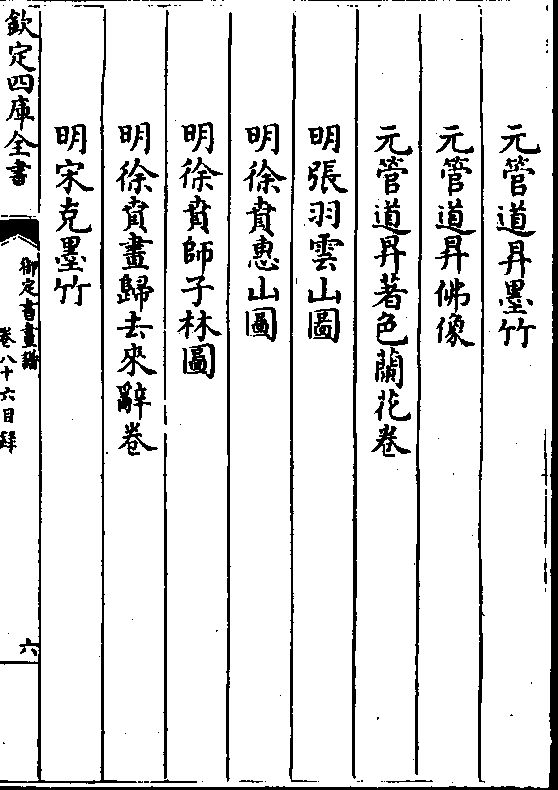 元管道昇墨竹
元管道昇佛像
元管道昇著色蘭花卷
明張羽雲山圖
明徐賁惠山圖
明徐賁師子林圖
明徐賁畫歸去來辭卷
明宋克墨竹
欽定四庫全書
御定書畫譜
卷八十六目録
六